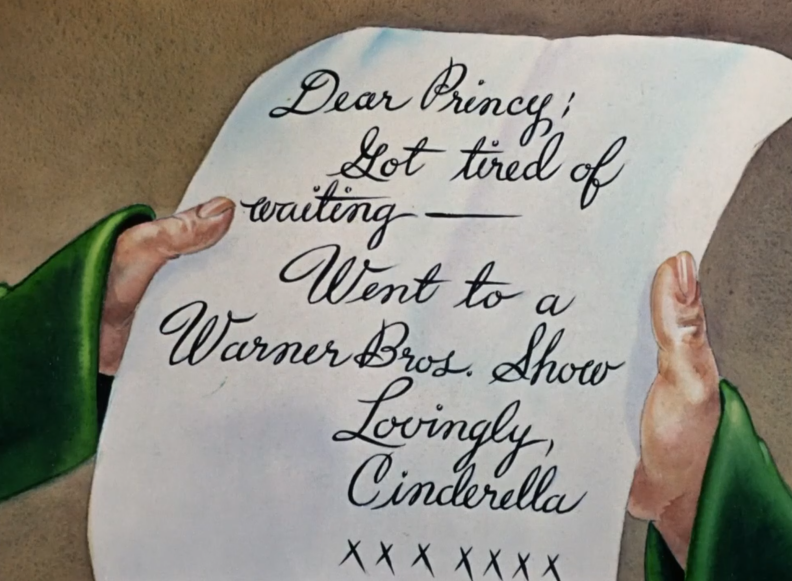 Dear Princy;
Got tired of
waiting —
Went to a
Warner Bros. Show
Lovingly,
Cinderella
x x x x x x x